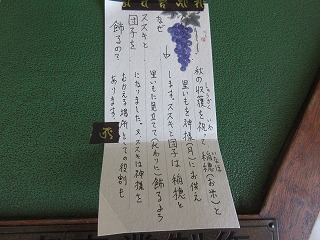 なぜ
ススキと
団子を
飾るので
秋の収穫を祝って稲穂(お米)と
里いもを神様(月)にお供え
します。ススキと団子は稲穂と
里いもに見立てて(代わりに)飾るよう
になりました。又、ススキは神様を
むかえる場所としての役割も
あります。